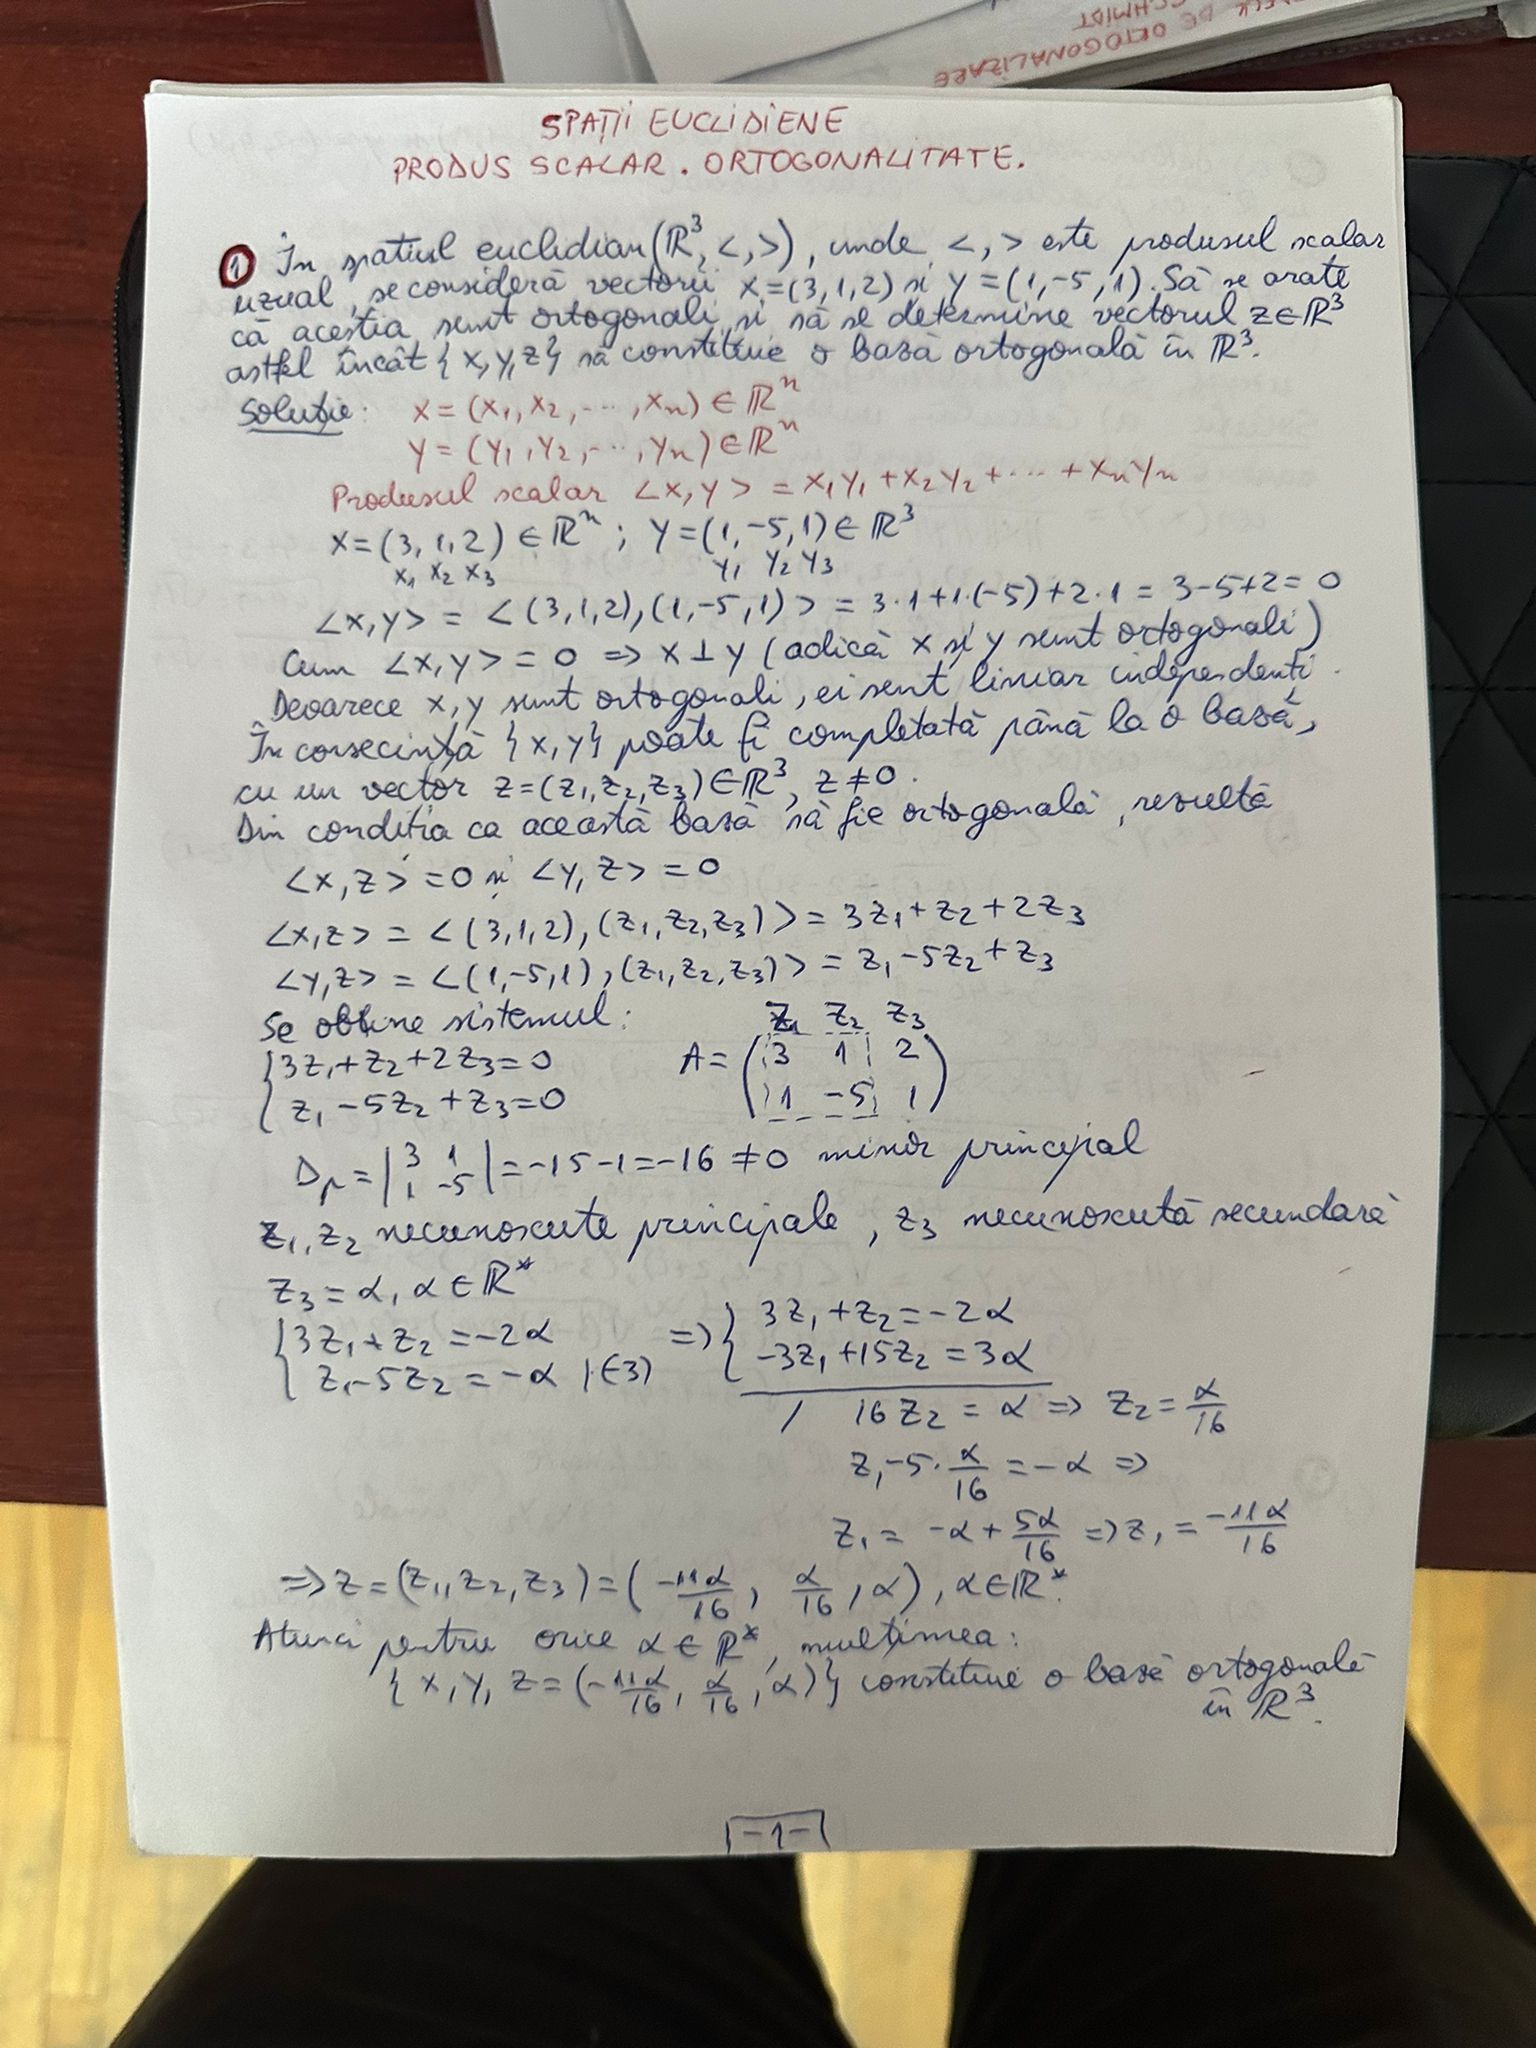 ORTOGONALIZARE
SCHMIDT
SPAȚII EUCLIDIENE
PRODUS SCALAR. ORTOGONALITATE.
① În spațiul euclidian (ℝ³, <,>), unde <,> este produsul scalar
uzual, se consideră vectorii x=(3,1,2) și y=(1,-5,1). Să se arate
că aceștia sunt ortogonali și să se determine vectorul z∈ℝ³
astfel încât {x,y,z} să constituie o bază ortogonală în ℝ³.
Soluție: x=(x₁,x₂,...,xₙ)∈ℝⁿ
y=(y₁,y₂,...,yₙ)∈ℝⁿ
Produsul scalar <x,y> = x₁y₁+x₂y₂+...+xₙyₙ
x=(3,1,2)∈ℝⁿ; y=(1,-5,1)∈ℝ³
x₁ x₂ x₃ y₁ y₂ y₃
<x,y> = <(3,1,2),(1,-5,1)> = 3·1+1·(-5)+2·1 = 3-5+2=0
Cum <x,y>=0 ⇒ x⊥y (adică x și y sunt ortogonali)
Deoarece x,y sunt ortogonali, ei sunt liniar independenți.
În consecință {x,y} poate fi completată până la o bază,
cu un vector z=(z₁,z₂,z₃)∈ℝ³, z≠0.
Din condiția ca această bază să fie ortogonală, rezultă
<x,z>=0 și <y,z>=0
<x,z> = <(3,1,2),(z₁,z₂,z₃)> = 3z₁+z₂+2z₃
<y,z> = <(1,-5,1),(z₁,z₂,z₃)> = z₁-5z₂+z₃
Se obține sistemul: z₁ z₂ z₃
{3z₁+z₂+2z₃=0 A= (3 1 2)
{z₁-5z₂+z₃=0 (1 -5 1)
Dp = |3 1| = -15-1=-16≠0 minor principal
|1 -5|
z₁,z₂ necunoscute principale, z₃ necunoscută secundară
z₃=α, α∈ℝ*
{3z₁+z₂=-2α ⇒ {3z₁+z₂=-2α
{z₁-5z₂=-α |·(-3) {-3z₁+15z₂=3α
/ 16z₂=α ⇒ z₂=α/16
z₁-5·α/16=-α ⇒
z₁=-α+5α/16 ⇒ z₁=-11α/16
⇒ z=(z₁,z₂,z₃)=(-11α/16, α/16, α), α∈ℝ*.
Atunci pentru orice α∈ℝ*, mulțimea:
{x,y, z=(-11α/16, α/16, α)} constituie o bază ortogonală
în ℝ³.
-1-